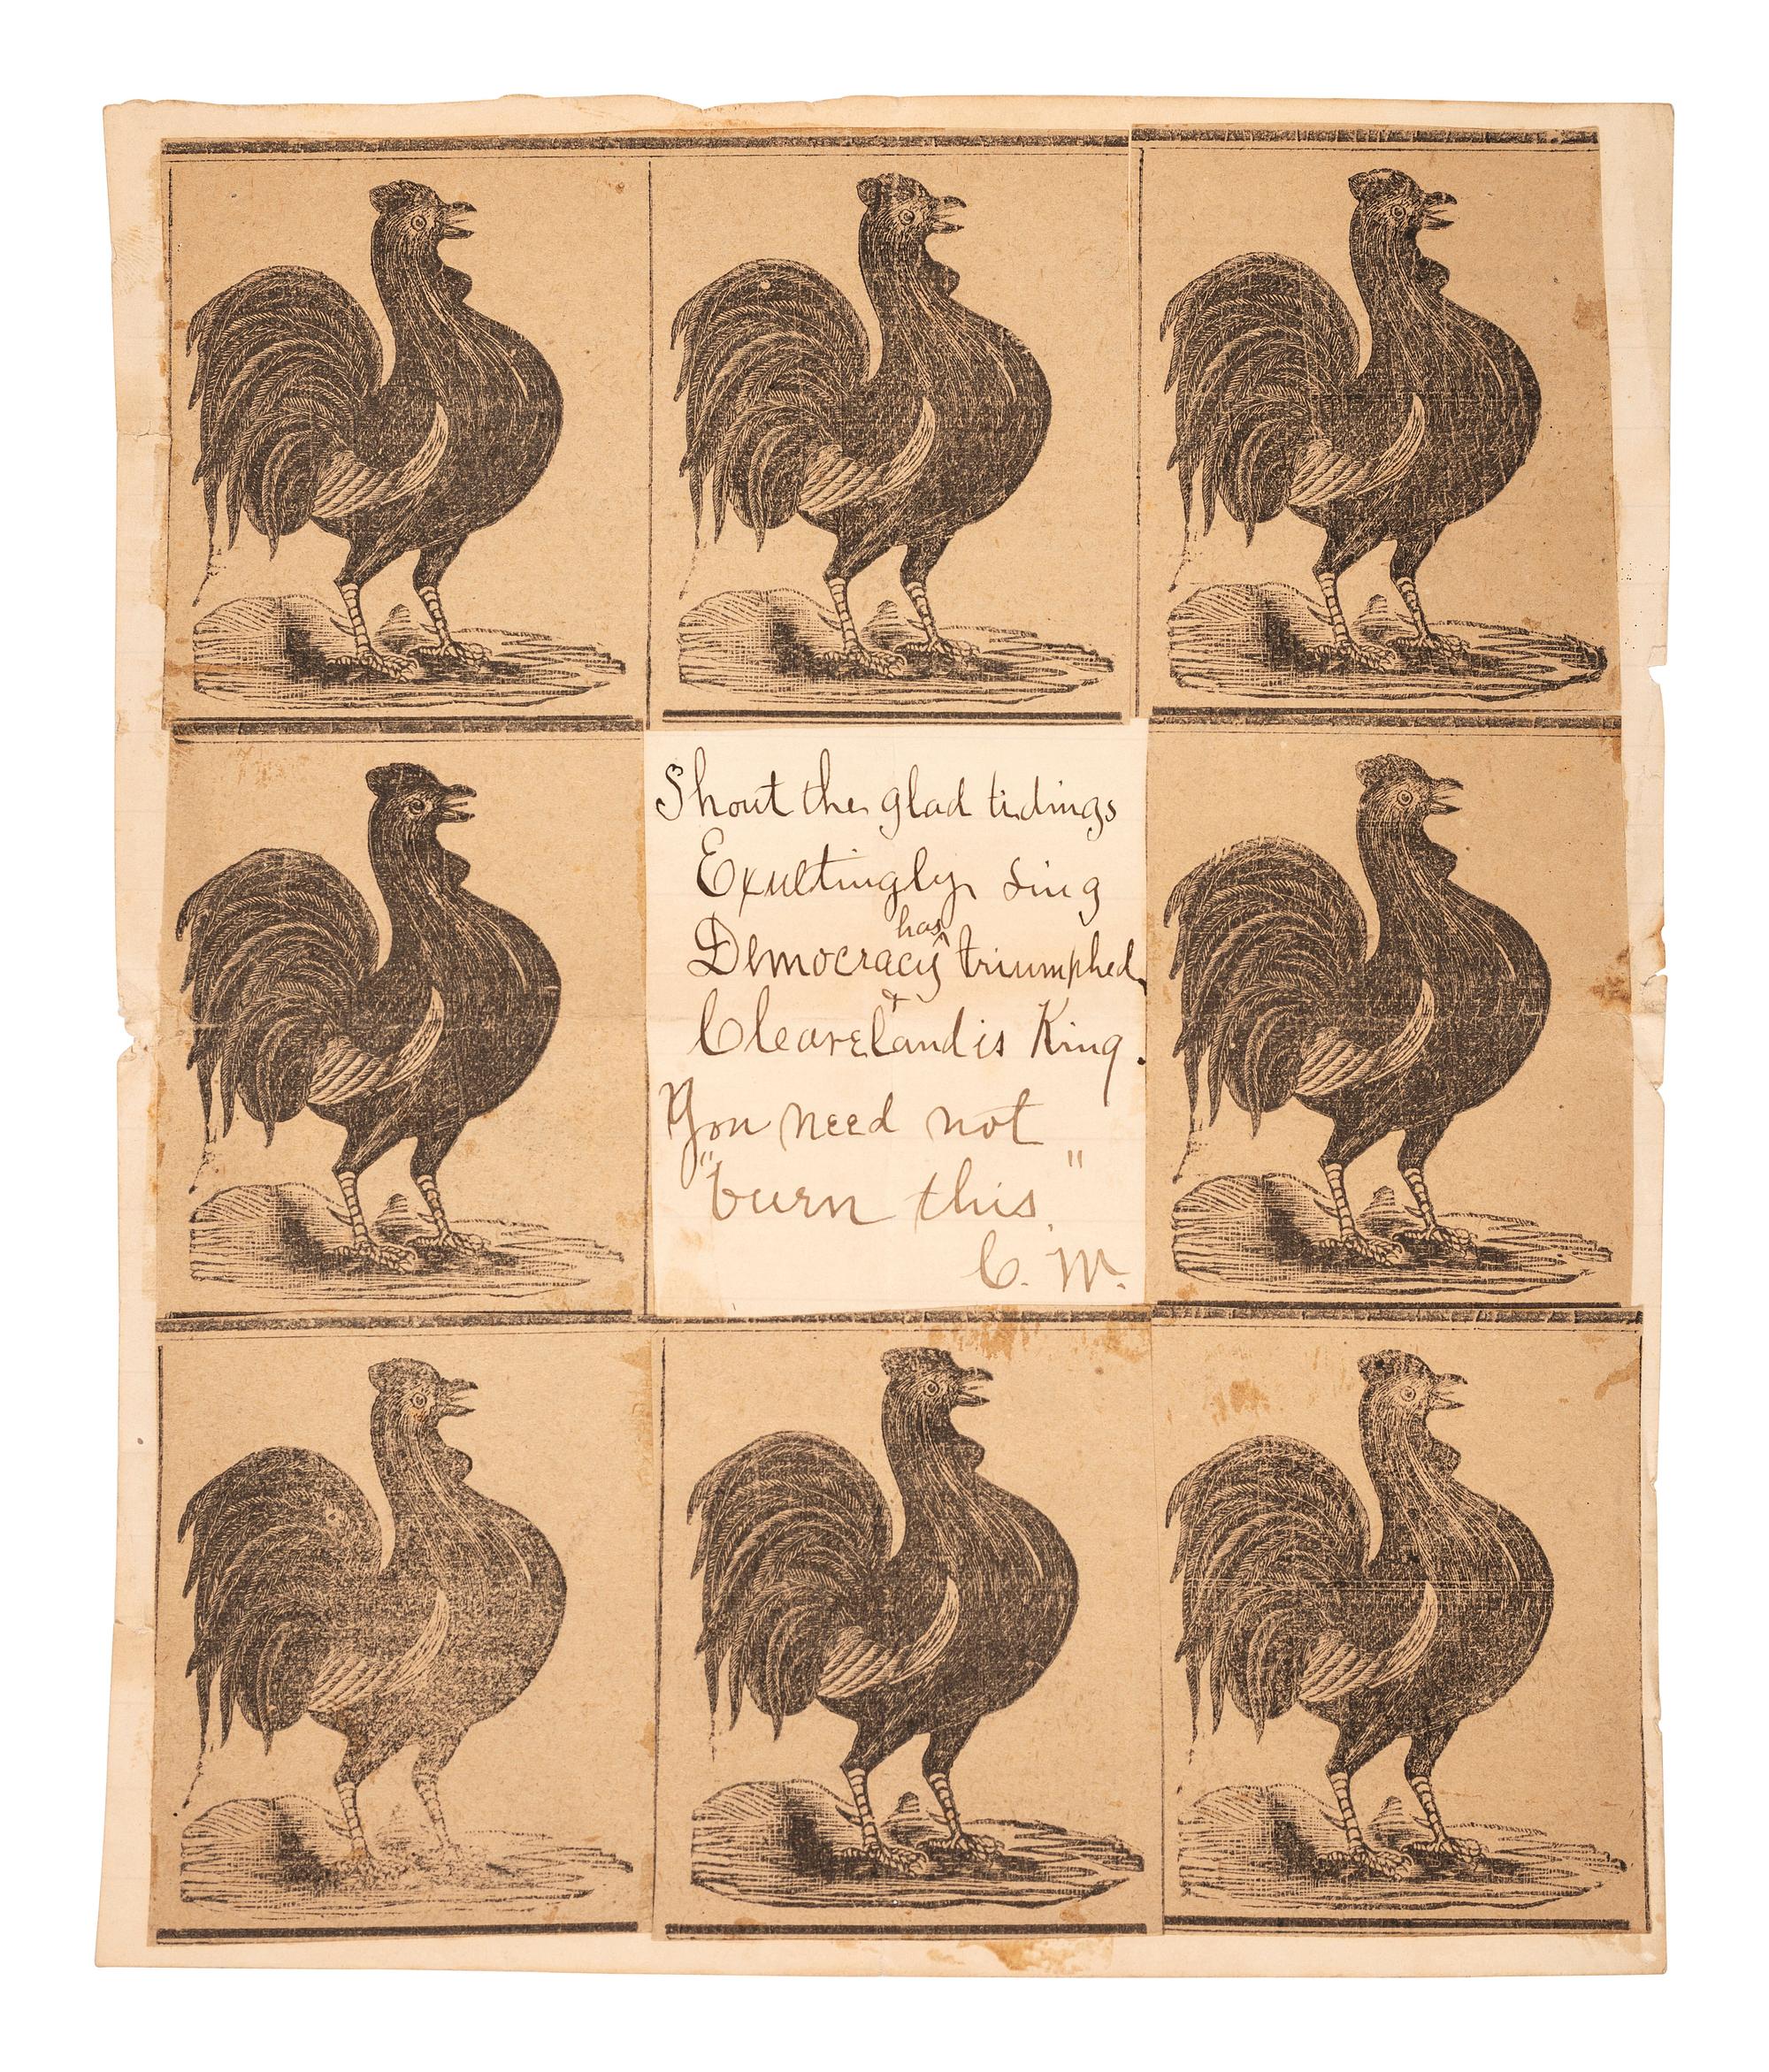 Shout the glad tidings
Exultingly sing
Democracy has triumphed
& Cleaveland is King.
You need not
"burn this"
C. W.